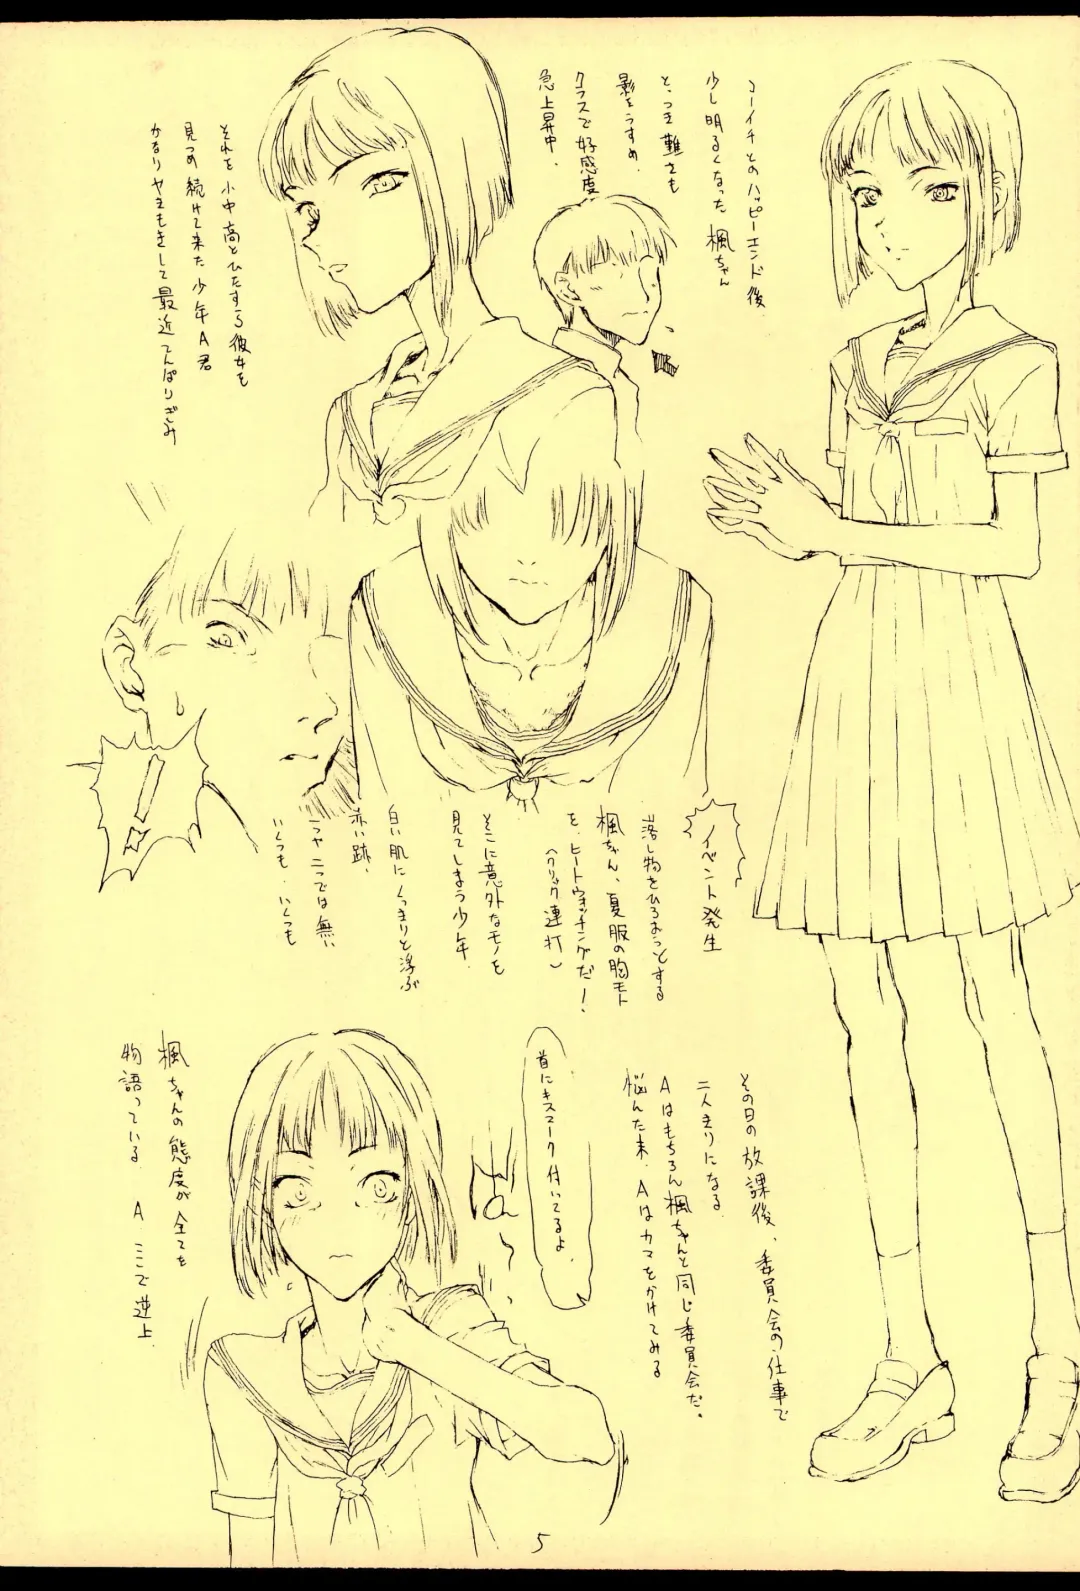 コーイチとのハッピーエンド後
少し明るくなった楓ちゃん
とっつき難さも
影をうすめ、
クラスで好感度
急上昇中.
それを小中高とひたすら彼女を
見つめ続けて来た少年A君
かなりヤキモキして最近てんぱりぎみ
イベント発生
落し物をひろおうとする
楓ちゃん、夏服の胸モト
を、ヒートウォッチングだ!
(クリック連打)
そこに意外なモノを
見てしまう少年.
白い肌にくっきりと浮ぶ
赤い跡、
一ツや二つでは無い
いくつも、いくつも
その日の放課後、委員会の仕事で
二人きりになる
Aはもちろん楓ちゃんと同じ委員会だ。
悩んだ末、Aはカマをかけてみる
首にキスマーク付いてるよ.
ばっ
楓ちゃんの態度が全てを
物語っている A ここで逆上
5